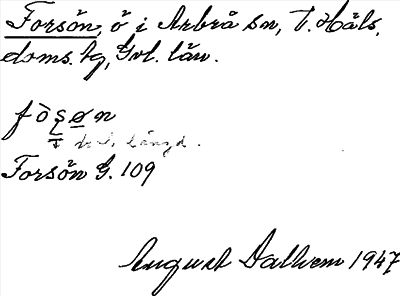 Forsön, ö i Arbrå sn, V. Häls.
doms. tg, Gvl. län.
fò̀şøn
Forsön G. 109
August Dalhem 1947